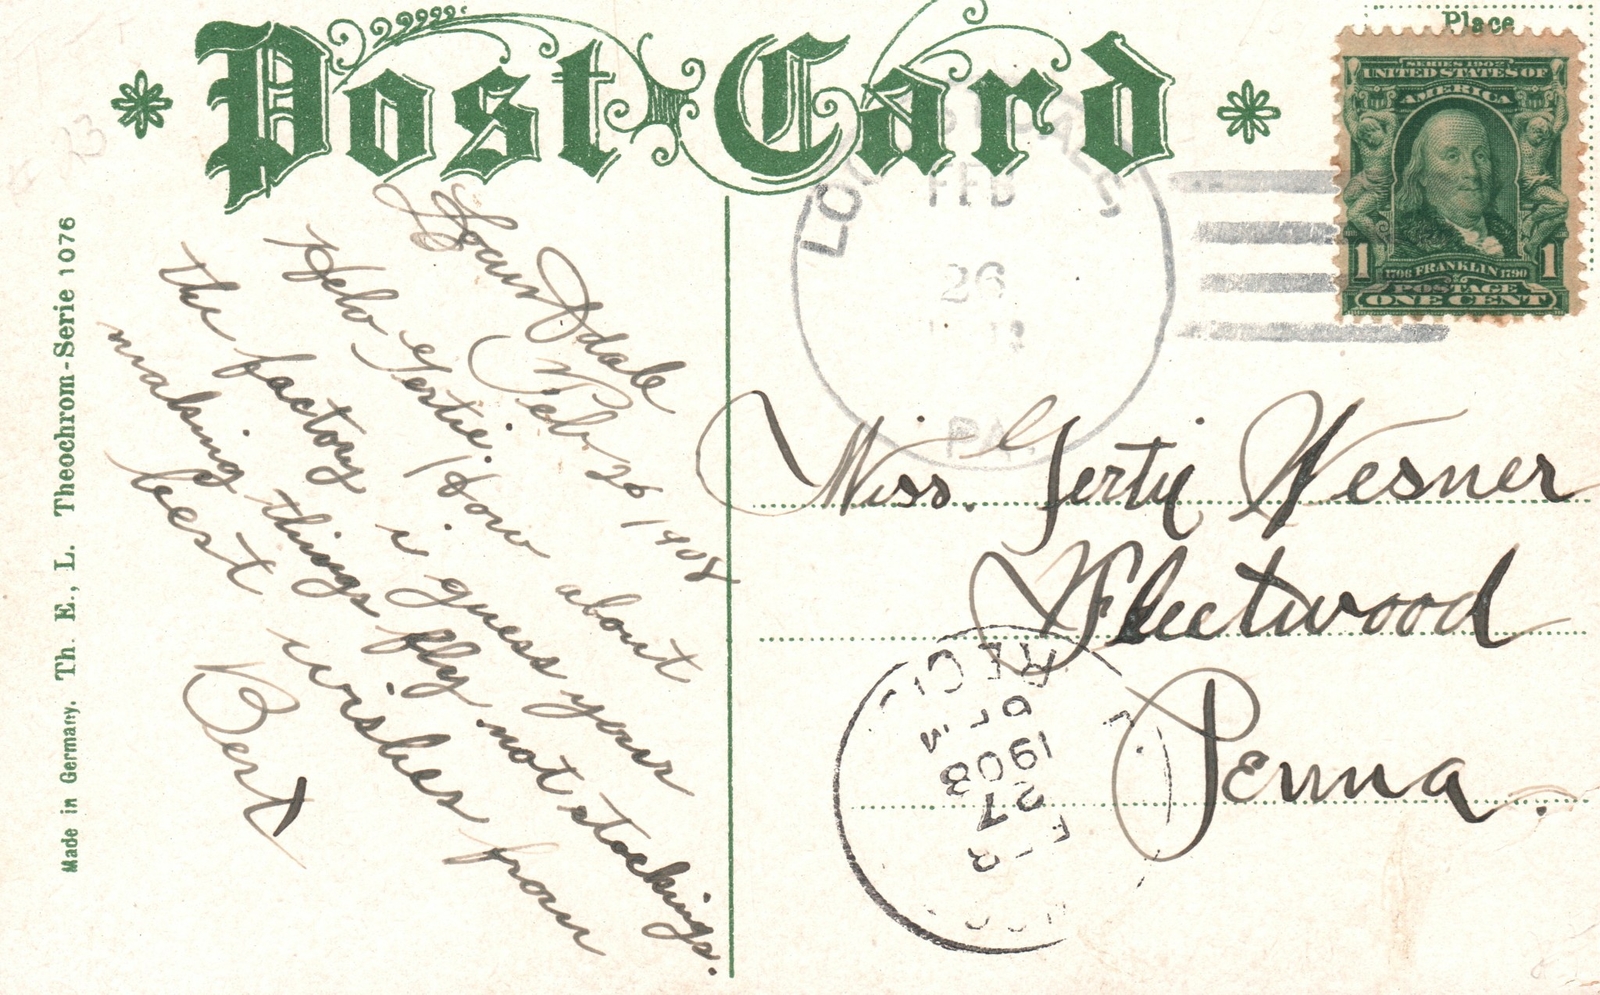 Post Card
Place
SERIES 1902
UNITED STATES OF
AMERICA
1706 FRANKLIN 1790
1 1
POSTAGE
ONE CENT
FEB
26
PA.
Made in Germany. Th. E., L. Theochrom-Serie 1076
Loansdale
Feb. 26 1908
Helo Gertie. How about
the factory i guess your
making things fly not stockings.
best wishes from
Bert
Miss. Gertie Wesner
Fleetwood
Penna.
REC'D.
1908
27
FEB